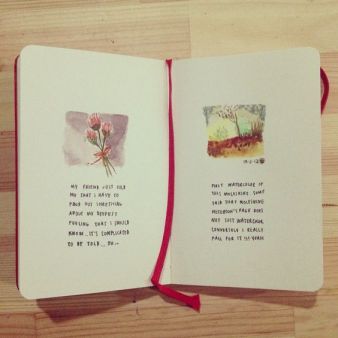 MY FRIEND JUST TOLD
ME THAT I HAVE TO
POUR OUT SOMETHING
ABOUT MY DEEPEST
FEELING THAT I SHOULD
KNOW.. IT'S COMPLICATED
TO BE TOLD..
19.2.12
FIRST WATERCOLOR IN
THIS MOLESKINE. SOME
SAID THAT MOLESKINE
NOTEBOOK'S PAGE DOES
NOT SUIT WATERCOLOR
I REALLY
FALL FOR IT !!!